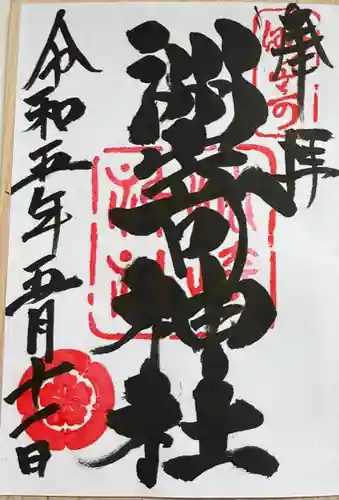 奉拝
洲崎神社
令和五年五月十一日